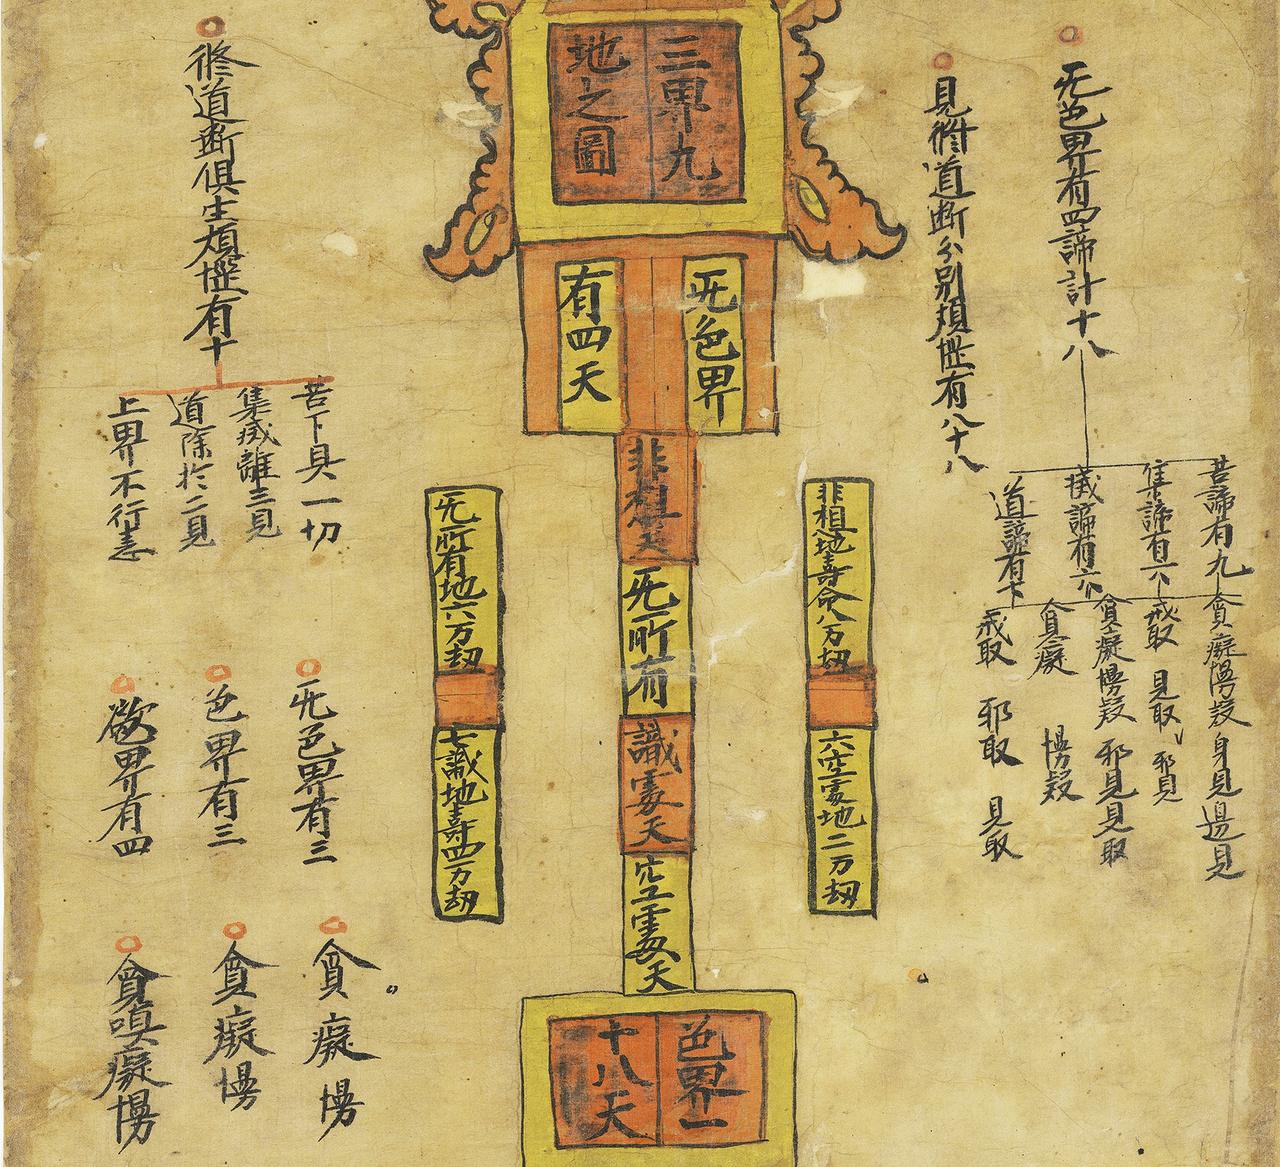 三界九
地之圖
无色界
有四天
非想天
无所有
識處天
空處天
色界一
十八天
无色界有四諦計十八
苦諦有九
集諦有六
滅諦有六
道諦有七
貪癡慢疑身見邊見
戒取見取邪見
貪癡慢疑邪見見取
貪癡慢疑
戒取邪取見取
見修道断分别煩惱有八十八
非想地壽命八万劫
六空處地二万劫
无所有地六万劫
七識地壽四万劫
修道断俱生煩惱有十
苦下具一切
集滅離三見
道除於二見
上界不行恚
无色界有三
色界有三
欲界有四
貪癡慢
貪癡慢
貪嗔癡慢